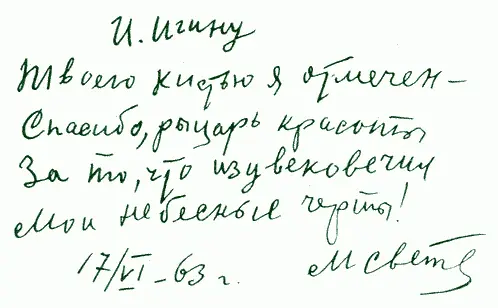 И. Игину
Твоею кистью я отмечен –
Спасибо, рыцарь красоты
За то, что изувековечил
Мои небесные черты!
17/VI – 63 г. М Светл